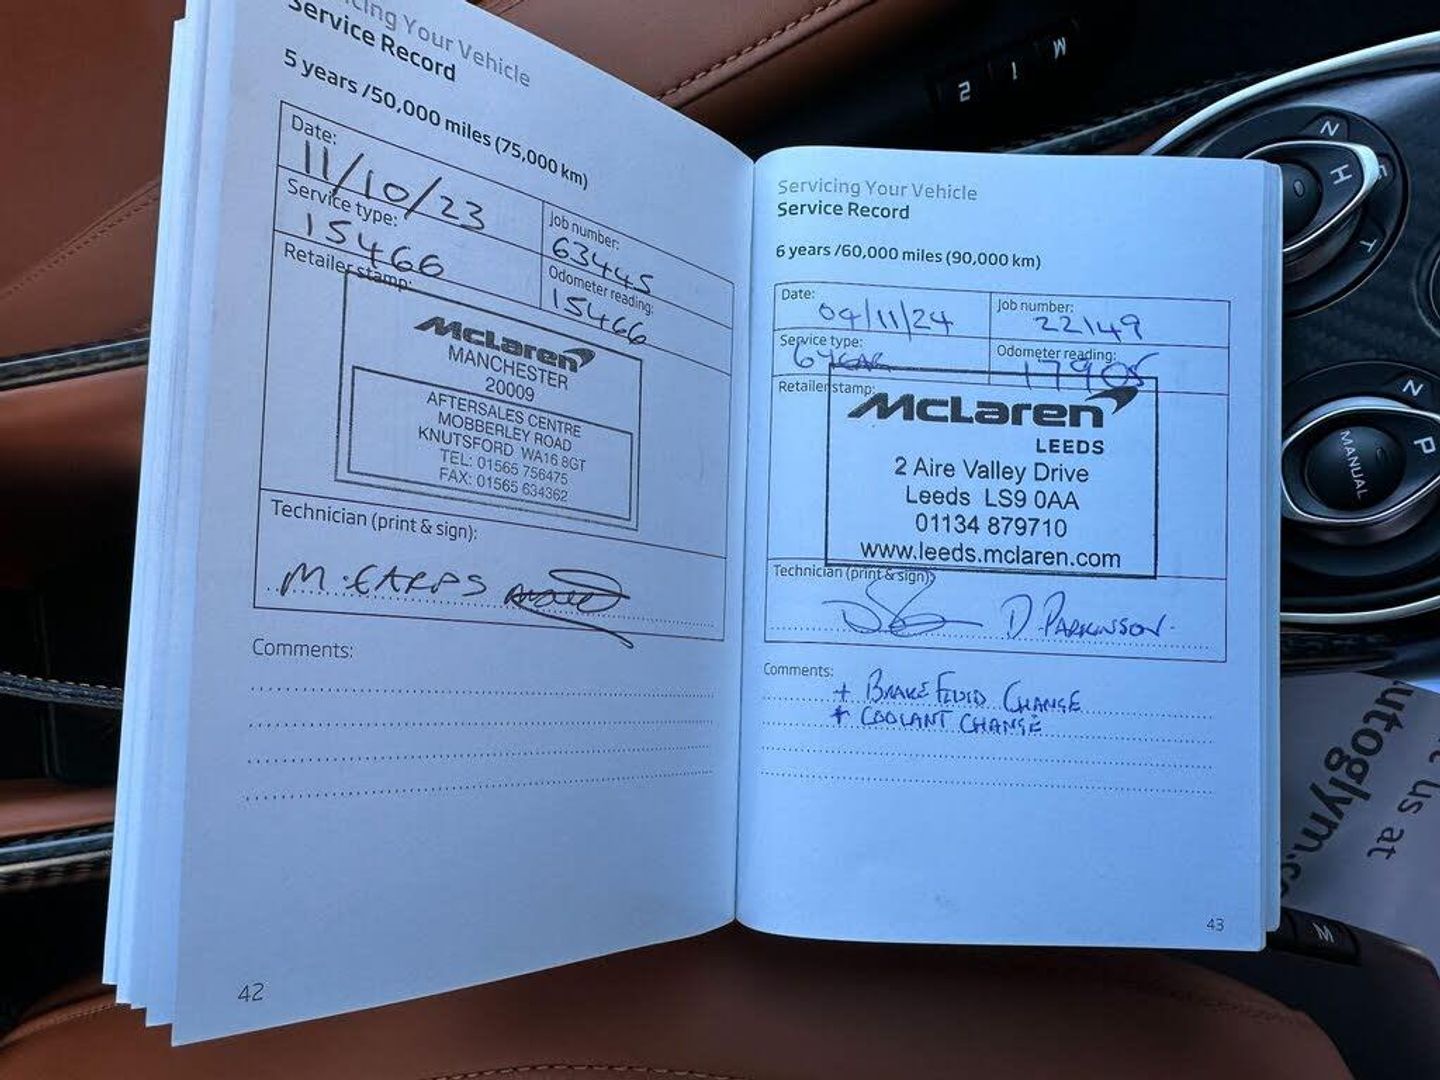 Servicing Your Vehicle
Service Record
5 years /50,000 miles (75,000 km)
Date:
11/10/23
Job number:
63445
Service type:
15466
Odometer reading:
15466
Retailer stamp:
McLaren
MANCHESTER
20009
AFTERSALES CENTRE
MOBBERLEY ROAD
KNUTSFORD WA16 8GT
TEL: 01565 756475
FAX: 01565 634362
Technician (print & sign):
M. EARPS
Comments:
42
Servicing Your Vehicle
Service Record
6 years /60,000 miles (90,000 km)
Date:
04/11/24
Job number:
22149
Service type:
6 YEAR
Odometer reading:
17905
Retailer stamp:
McLaren
LEEDS
2 Aire Valley Drive
Leeds LS9 0AA
01134 879710
www.leeds.mclaren.com
Technician (print & sign):
D PARKINSON.
Comments:
+ BRAKE FLUID CHANGE
+ COOLANT CHANGE
43
2 1 M
N
H
T
N
P
MANUAL
us at
M